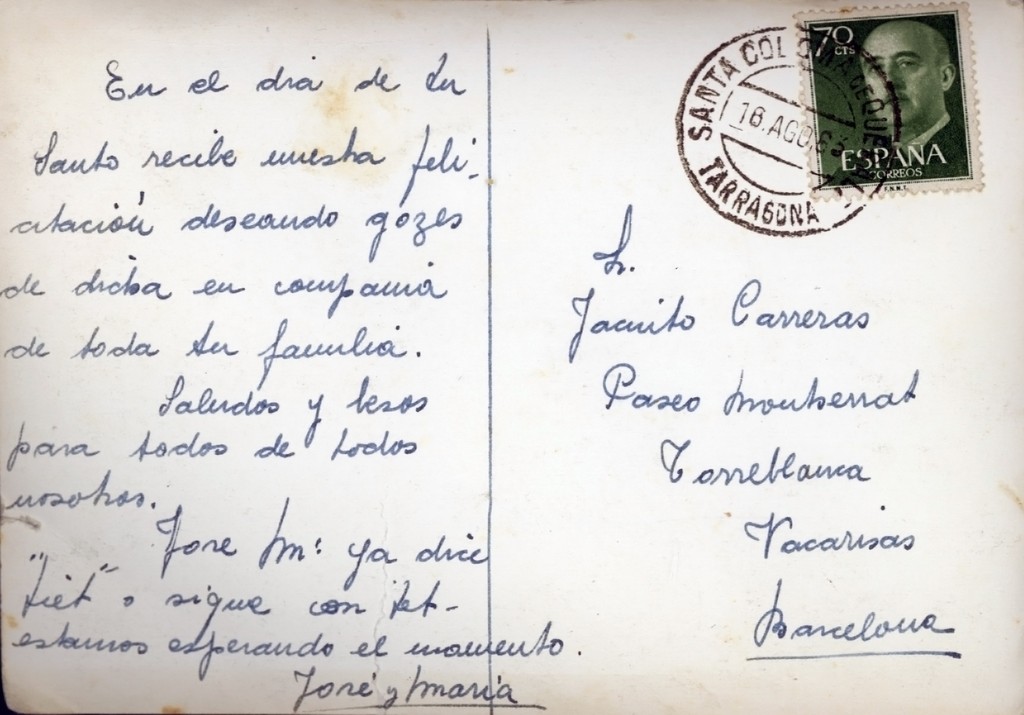 En el dia de tu
Santo recibe nuestra feli-
citación deseando gozes
de dicha en compania
de toda tu familia.
Saludos y besos
para todos de todos
nosotros.
Jose Mª ya dice
"tiet" o sigue con tet-
estamos esperando el momento.
José y Maria
SANTA COLOMA DE QUERALT
16.AGO
TARRAGONA
70
CTS
ESPAÑA
CORREOS
F.N.M.T.
Sr.
Jacinto Carreras
Paseo Montserrat
Torreblanca
Vacarisas
Barcelona